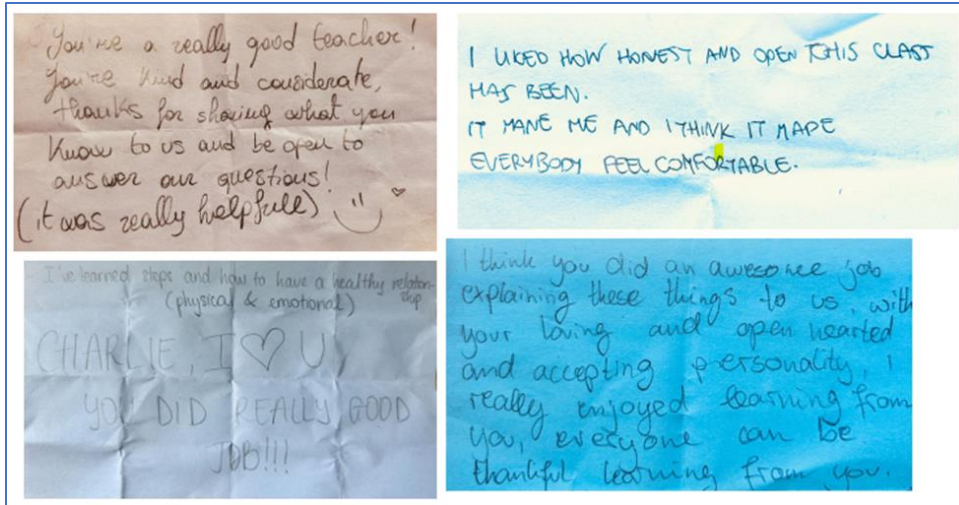 You're a really good teacher!
You're kind and considerate,
thanks for sharing what you
know to us and be open to
answer our questions!
(it was really helpfull)
I LIKED HOW HONEST AND OPEN THIS CLASS
HAS BEEN.
IT MANE ME AND I THINK IT MADE
EVERYBODY FEEL COMFORTABLE.
I've learned steps and how to have a healthy relation-
ship
(physical & emotional)
CHARLIE, I ♡ U
YOU DID REALLY GOOD
JOB!!!
I think you did an awesome job
explaining these things to us, with
your loving and open hearted
and accepting personality, i
really enjoyed learning from
you, everyone can be
thankful learning from you.